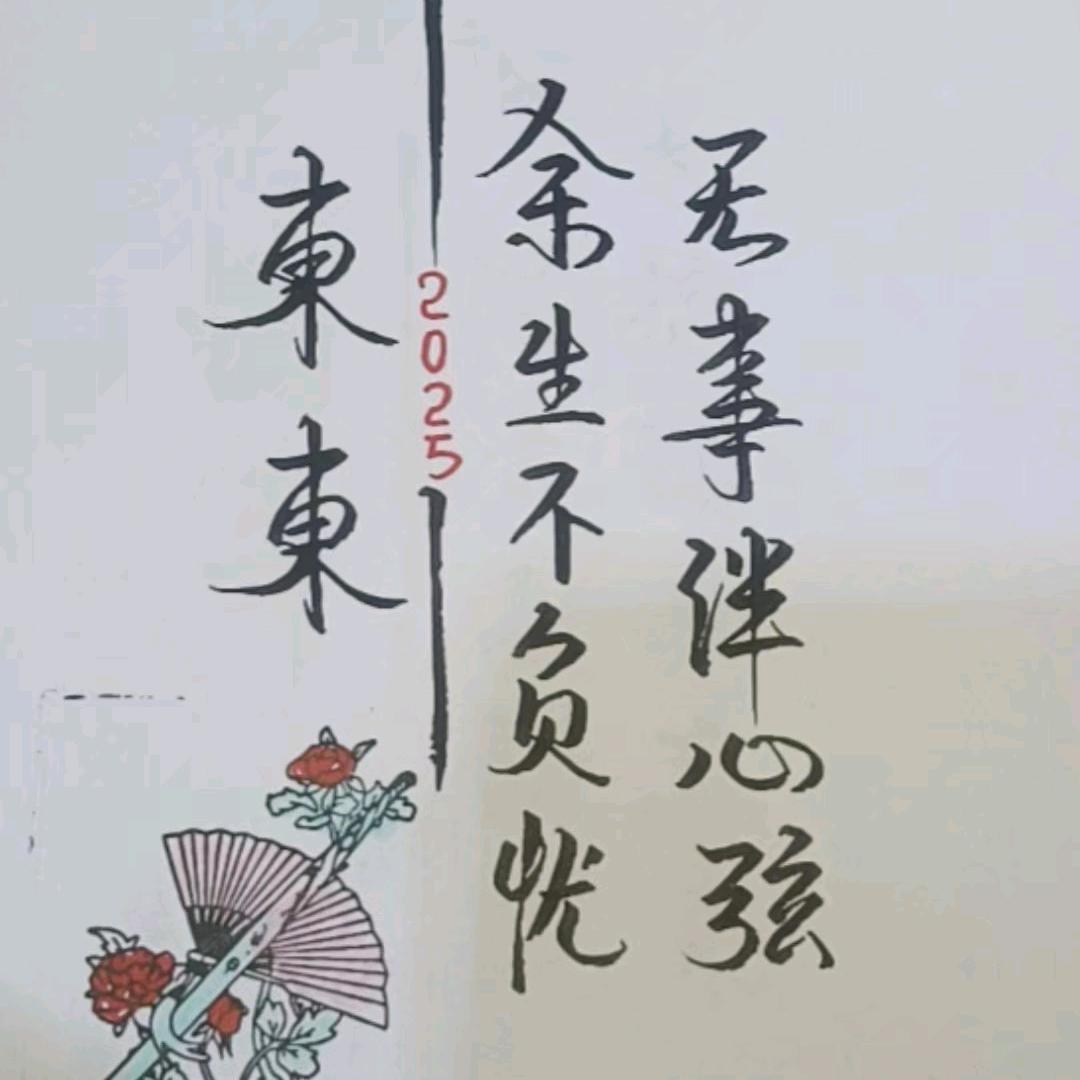 无事伴心弦
余生不负忧
2025
東東